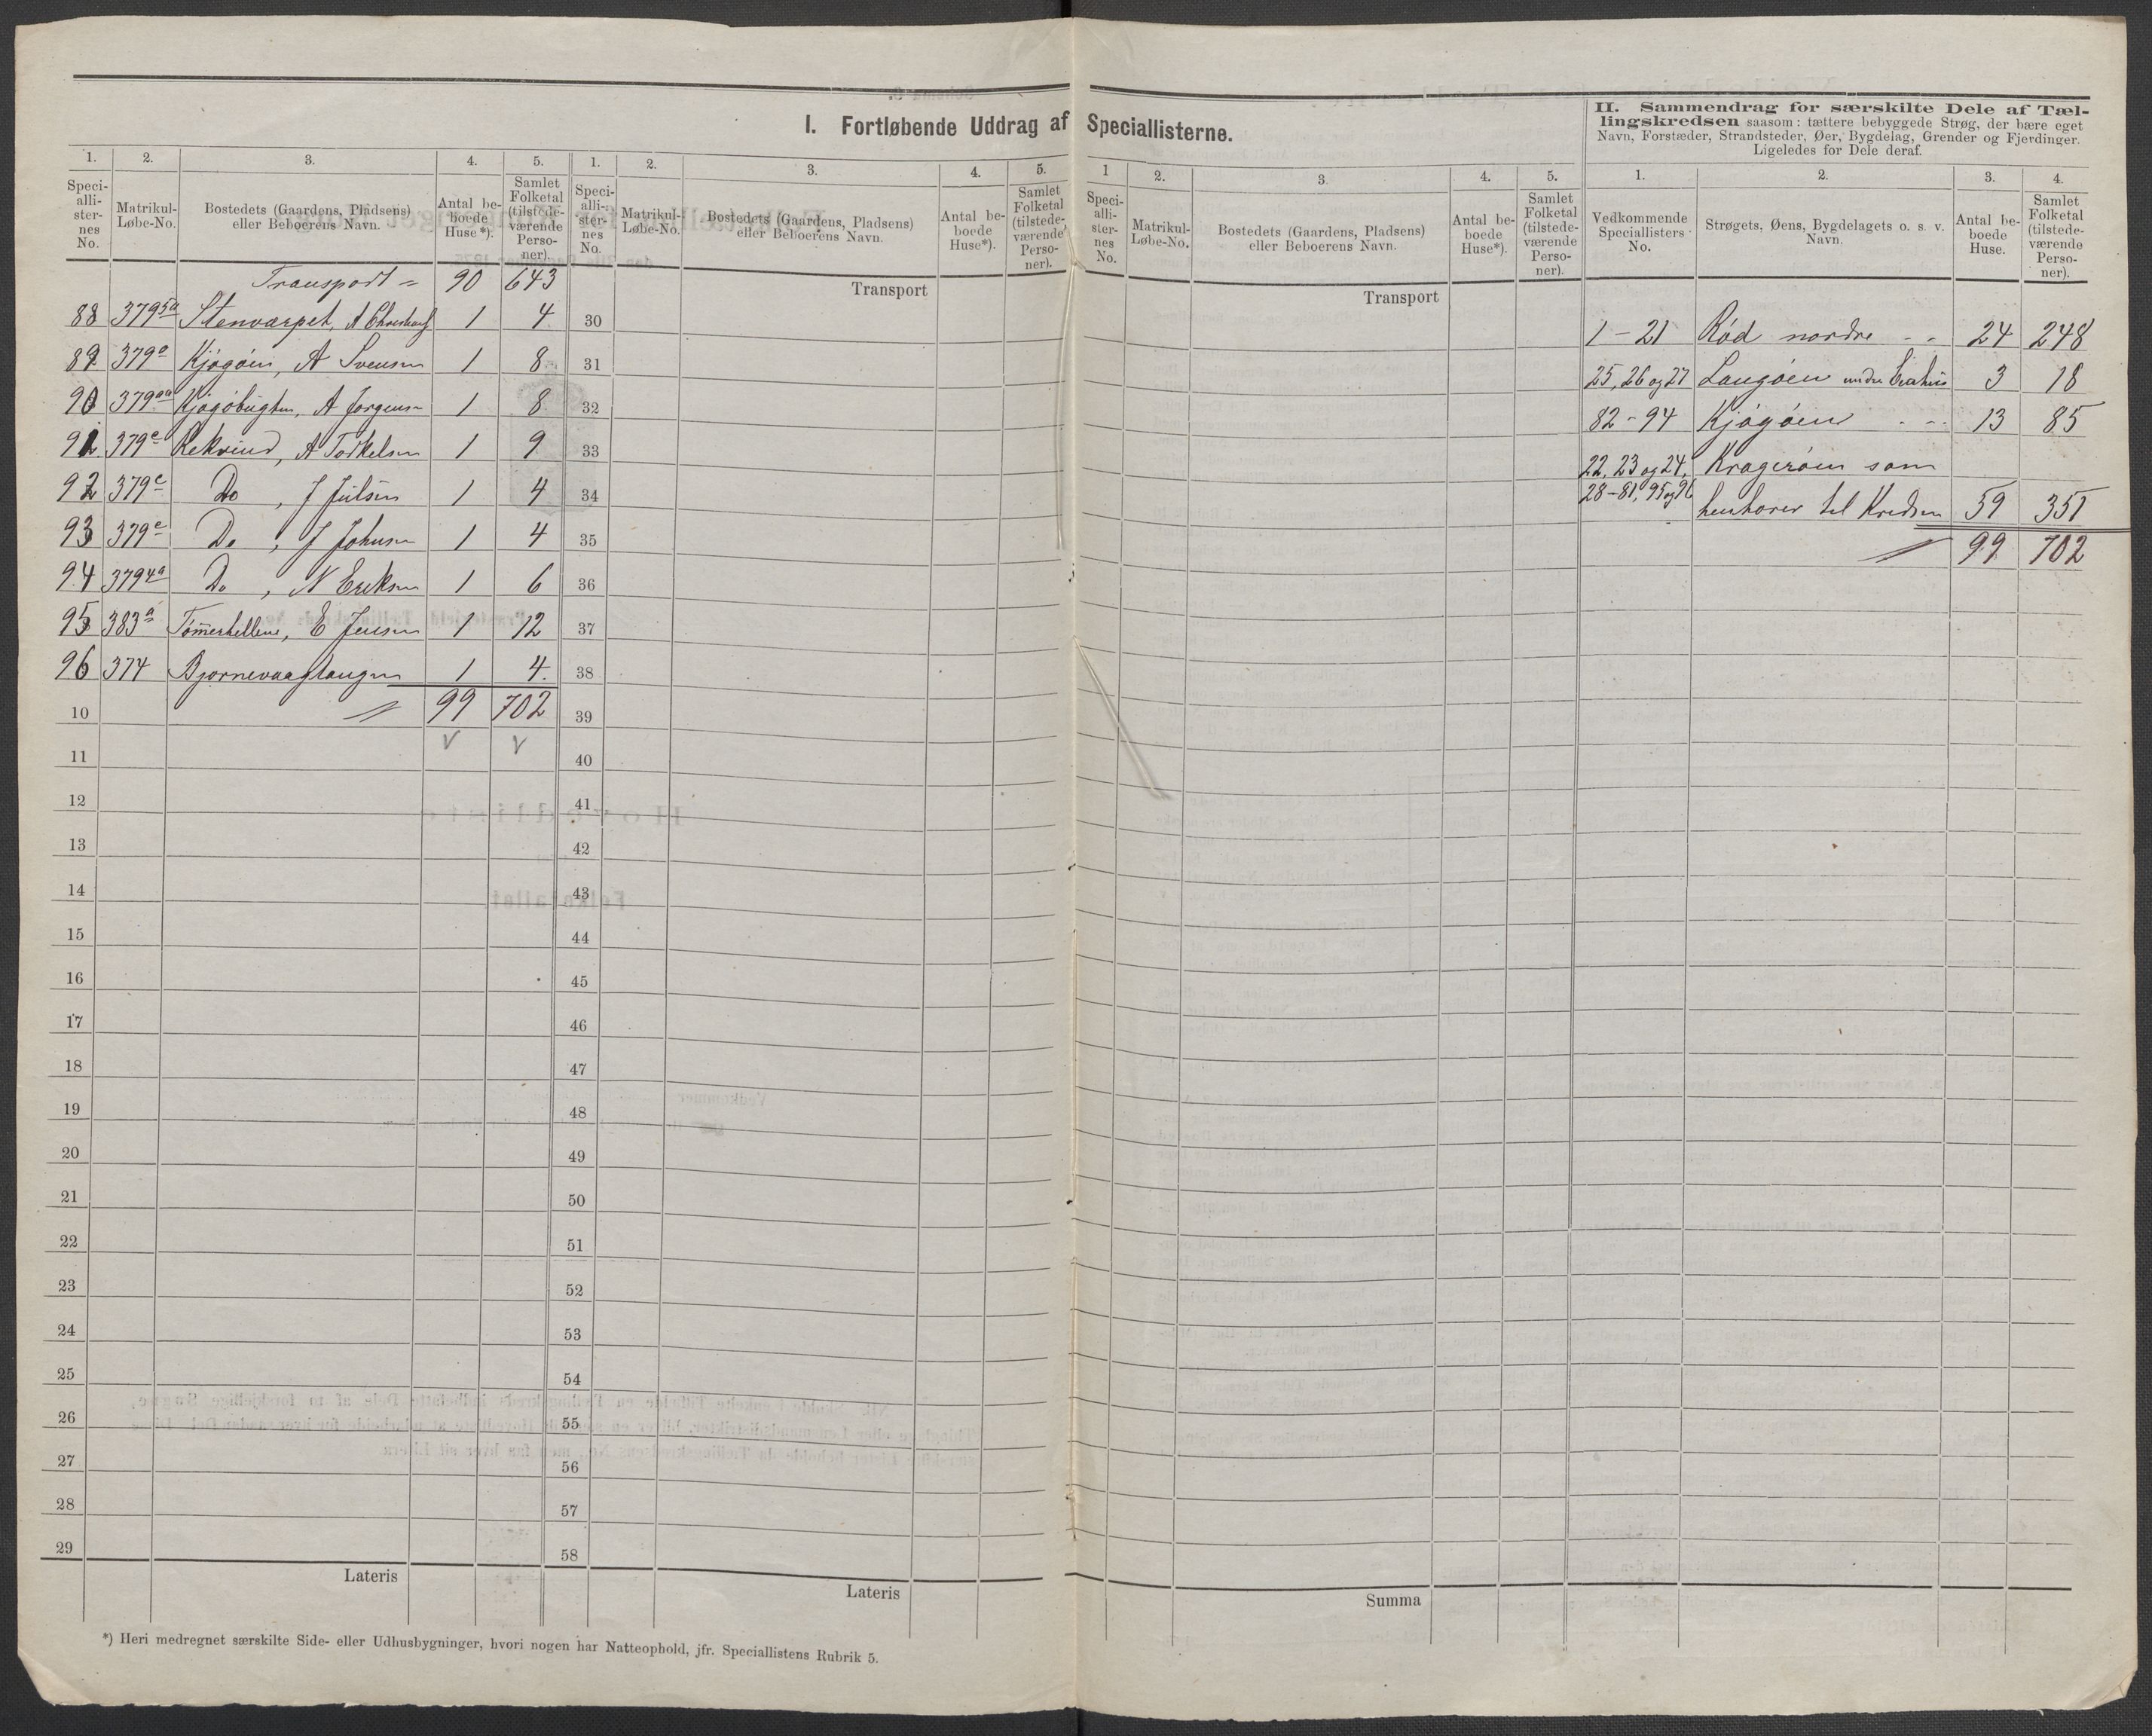 I. Fortløbende Uddrag af Speciallisterne.
II. Sammendrag for særskilte Dele af Tæl-
lingskredsen saasom: tættere bebyggede Strøg, der bære eget
Navn, Forstæder, Strandsteder, Øer, Bygdelag, Grender og Fjerdinger.
Ligeledes for Dele deraf.
1. 2. 3. 4. 5. 1. 2. 3. 4. 5. 1 2. 3. 4. 5. 1. 2. 3. 4.
Speci-
alli-
ster-
nes
No.
Matrikul-
Løbe-No.
Bostedets (Gaardens, Pladsens)
eller Beboerens Navn.
Antal be-
boede
Huse*).
Samlet
Folketal
(tilstede-
værende
Perso-
ner).
Speci-
alli-
ster-
nes
No.
Matrikul-
Løbe-No.
Bostedets (Gaardens, Pladsens)
eller Beboerens Navn.
Antal be-
boede
Huse*).
Samlet
Folketal
(tilstede-
værende
Perso-
ner).
Speci-
alli-
ster-
nes
No.
Matrikul-
Løbe-No.
Bostedets (Gaardens, Pladsens)
eller Beboerens Navn.
Antal be-
boede
Huse*).
Samlet
Folketal
(tilstede-
værende
Perso-
ner).
Vedkommende
Speciallisters
No.
Strøgets, Øens, Bygdelagets o. s. v.
Navn.
Antal be-
boede
Huse.
Samlet
Folketal
(tilstede-
værende
Perso-
ner).
Transport = 90 643
88 379 5a Stenvarpet, A 1 4
89 379 Kjøgøen, A Svensen 1 8
90 379aa Kjøgøbugten, A Jørgensen 1 8
91 379e Rekvind, A Torkelsen 1 9
92 379e Do, J Julsen 1 4
93 379e Do, J Johnsen 1 4
94 379 4a Do, N Eriksen 1 6
95 383a Tømmerhellene, E Jensen 1 12
96 374 Bjørnevaagtangen 1 4.
10 99 702
11
12
13
14
15
16
17
18
19
20
21
22
23
24
25
26
27
28
29
Lateris
Transport
30
31
32
33
34
35
36
37
38
39
40
41
42
43
44
45
46
47
48
49
50
51
52
53
54
55
56
57
58
Lateris
Transport
Summa
1-21 Rød nordre 24 248
25, 26 og 27 Langøen 3 18
82-94 Kjøgøen 13 85
22, 23 og 24, Kragerøen som
28-81, 95 og 96 henhører til Kredsen 59 351
99 702
*) Heri medregnet særskilte Side- eller Udhusbygninger, hvori nogen har Natteophold, jfr. Speciallistens Rubrik 5.